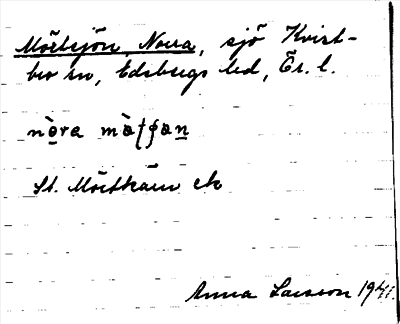 Mörtsjön, Norra, sjö Kvist-
bro sn, Edsbergs hd, Ör. l.
St. Mörtkärn ek
Anna Larsson 1941.